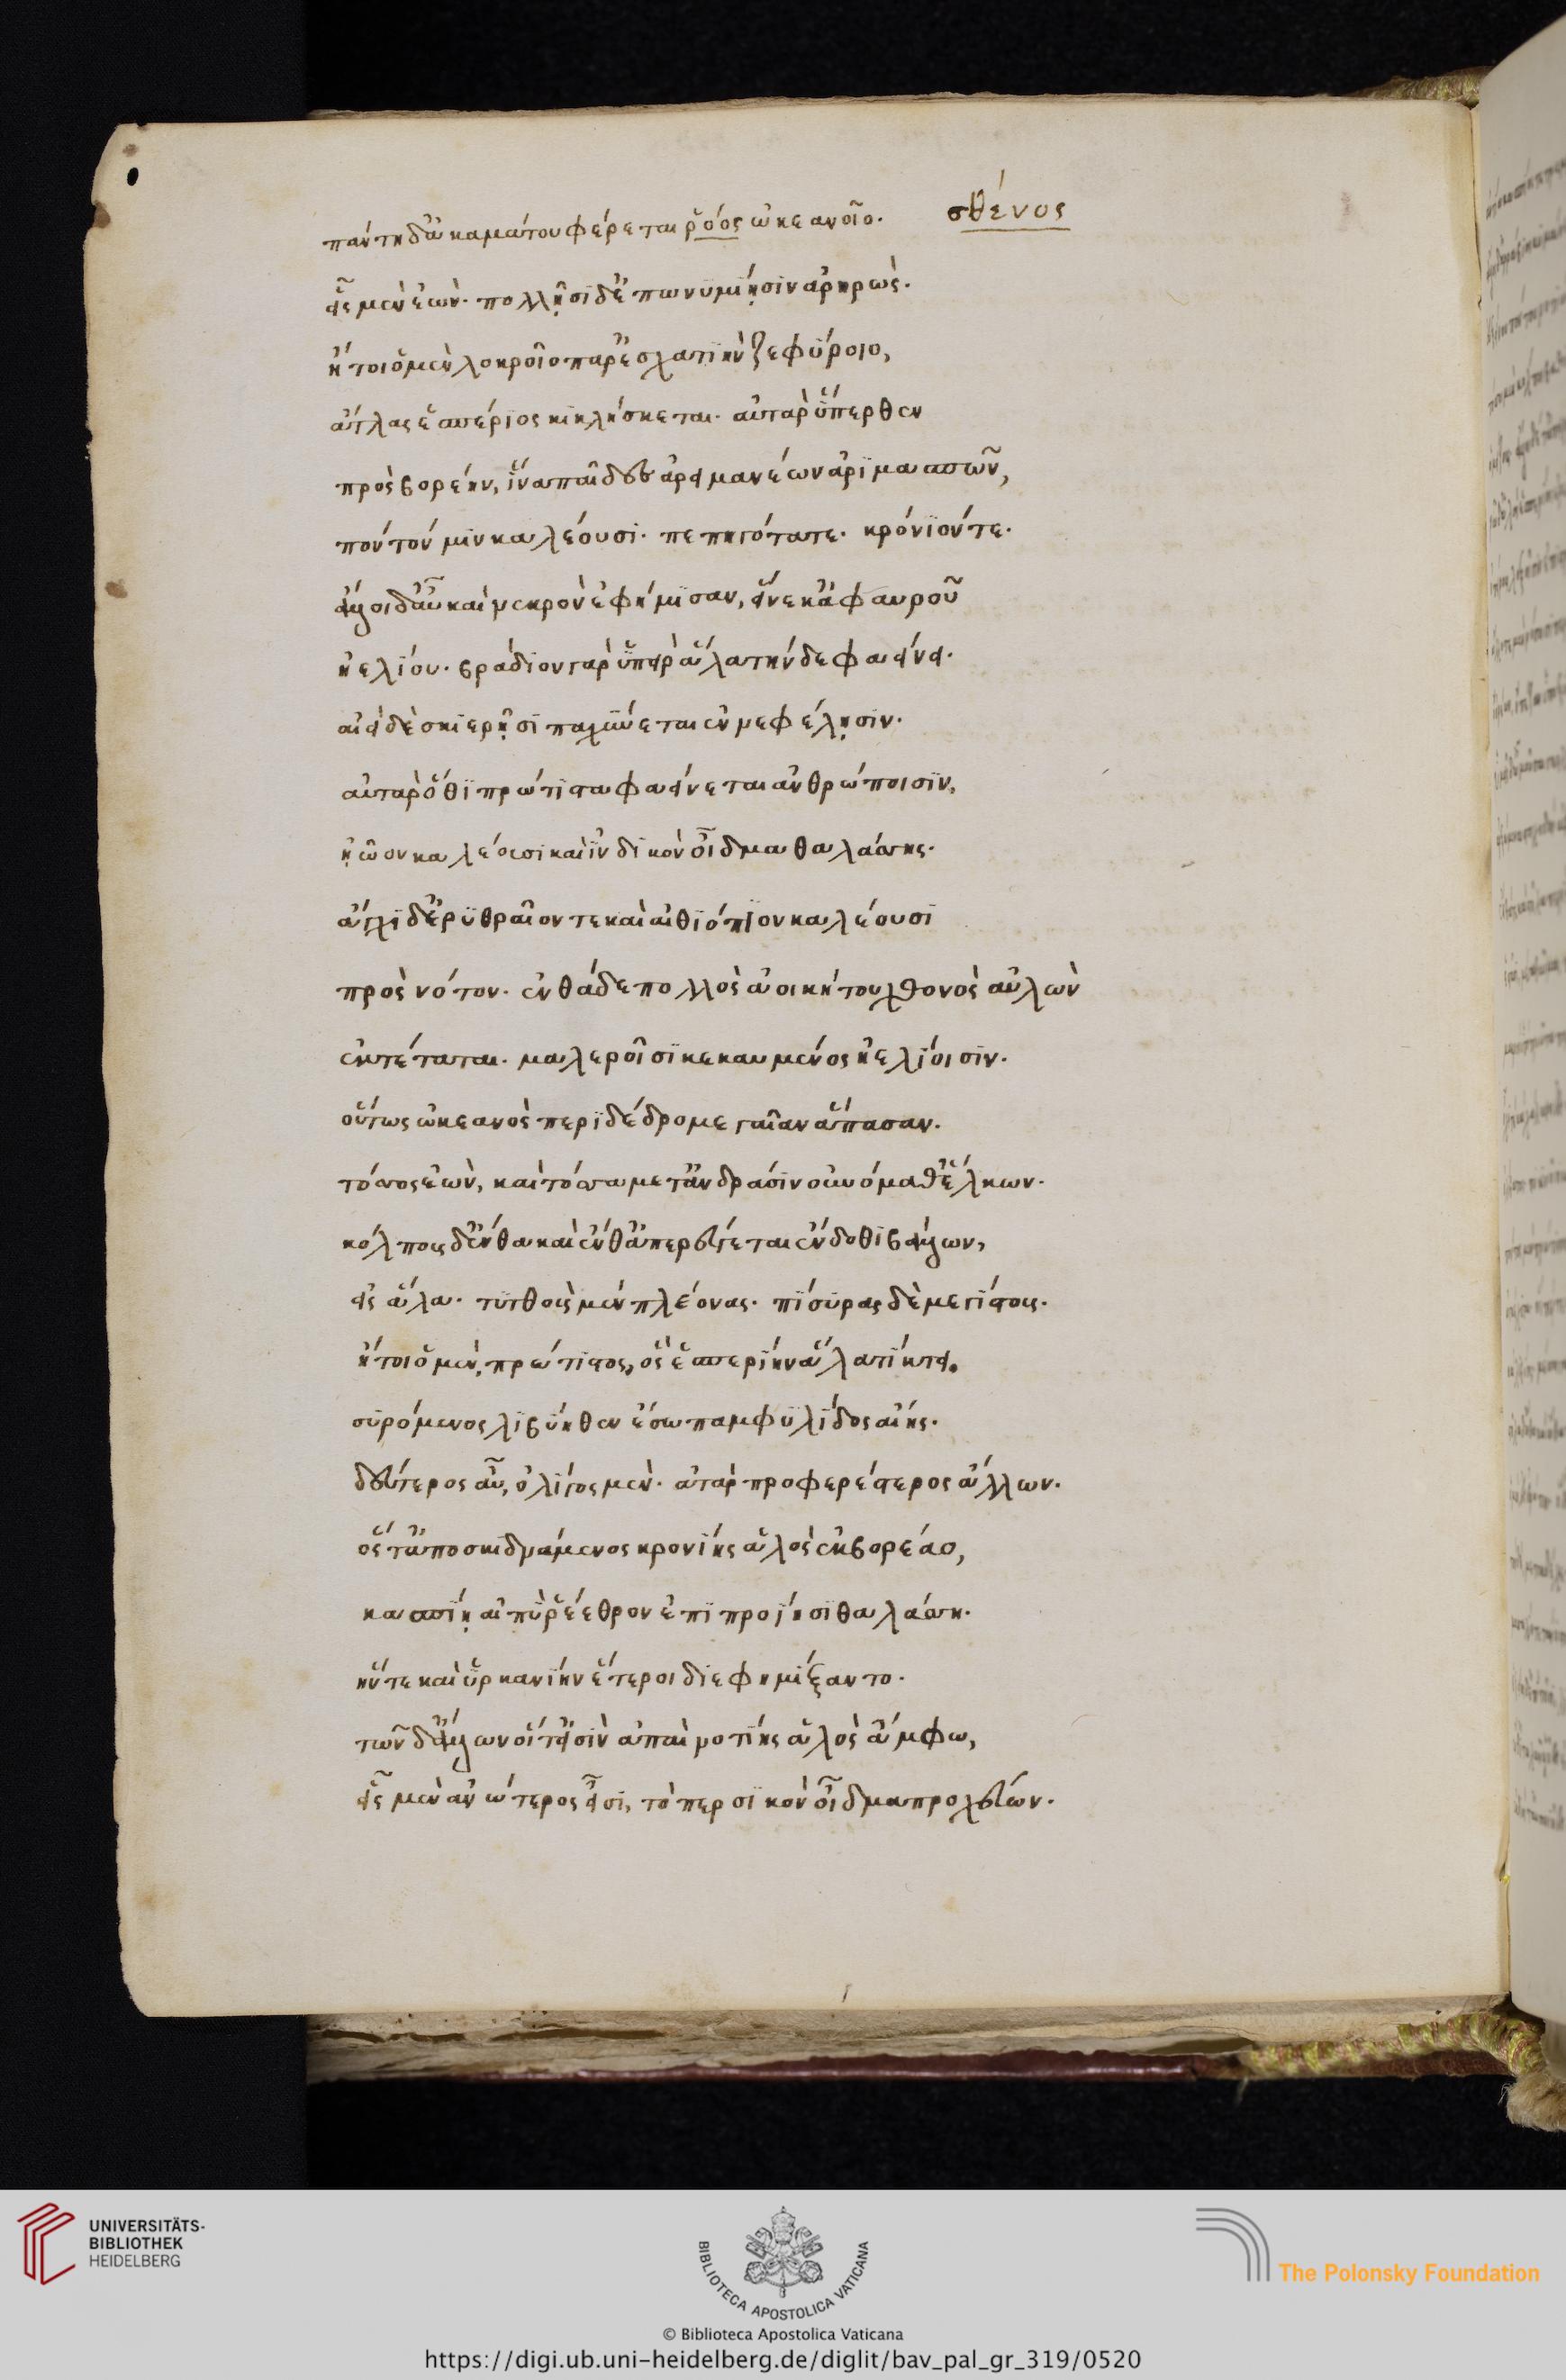 πάντη δ' ἀκαμάτου φέρεται ῥόος ὠκεανοῖο. σθένος
εἷς μὲν ἐών. πολλῇσι δ' ἐπωνυμίῃσιν ἀρηρώς.
ἤτοι ὁ μὲν λοκροῖο παρ' ἐσχατιὴν ζεφύροιο,
ἄτλας ἑσπέριος κικλήσκεται. αὐτὰρ ὕπερθεν
πρὸς βορέην, ἵνα παῖδες ἀρειμανέων ἀριμασπῶν,
πόντον μιν καλέουσι. πεπηγότα τε. κρόνιόν τε.
ἄλλοι δ' αὖ καὶ νεκρὸν ἐφήμισαν, εἵνεκ' ἀφαυροῦ
ἠελίου. βράδιον γὰρ ὑπεὶρ ἅλα τήνδε φαείνει.
αἰεὶ δὲ σκιερῇσι παχύνεται ἐν νεφέλῃσιν.
αὐτὰρ ὅθι πρώτιστα φαείνεται ἀνθρώποισιν,
ἠῷον καλέουσι καὶ ἰνδικὸν οἶδμα θαλάσσης.
ἄγχι δ' ἐρυθραῖόν τε καὶ αἰθιόπιον καλέουσι
πρὸς νότον. ἐνθάδε πολλὸς ἀοικήτου χθονὸς αὐλὼν
ἐκτέταται. μαλεροῖσι κεκαυμένος ἠελίοισιν.
οὕτως ὠκεανὸς περιδέδρομε γαῖαν ἅπασαν.
τόσσος ἐών, καὶ τόσσα μετ' ἀνδράσιν οὐνόμαθ' ἕλκων.
κόλπους δ' ἔνθα καὶ ἔνθ' ἀπερεύγεται ἔνδοθι βάλλων,
εἰς ἅλα. τυτθοὺς μὲν πλέονας. πίσυρας δὲ μεγίστους.
ἤτοι ὁ μὲν πρώτιστος, ὃς ἑσπερίην ἅλα τίκτει.
συρόμενος λιβύηθεν ἔσω παμφυλίδος αἴης.
δεύτερος αὖ, ὀλίγος μὲν. ἀτὰρ προφερέστερος ἄλλων.
ὅς τ' ἀποσκιδνάμενος κρονίης ἁλὸς ἐκ βορέαο,
κασπίῃ αἰπὺ ῥέεθρον ἐπιπροΐησι θαλάσσῃ.
ἥν τε καὶ ὑρκανίην ἕτεροι διεφημίξαντο.
τῶν δ' ἄλλων οἵ τ' εἰσὶν ἀπαὶ νοτίης ἁλὸς ἄμφω,
εἷς μὲν ἀνώτερος εἶσι, τὸ περσικὸν οἶδμα προχεύων.
UNIVERSITÄTS-
BIBLIOTHEK
HEIDELBERG
BIBLIOTECA APOSTOLICA VATICANA
The Polonsky Foundation
© Biblioteca Apostolica Vaticana
https://digi.ub.uni-heidelberg.de/diglit/bav_pal_gr_319/0520